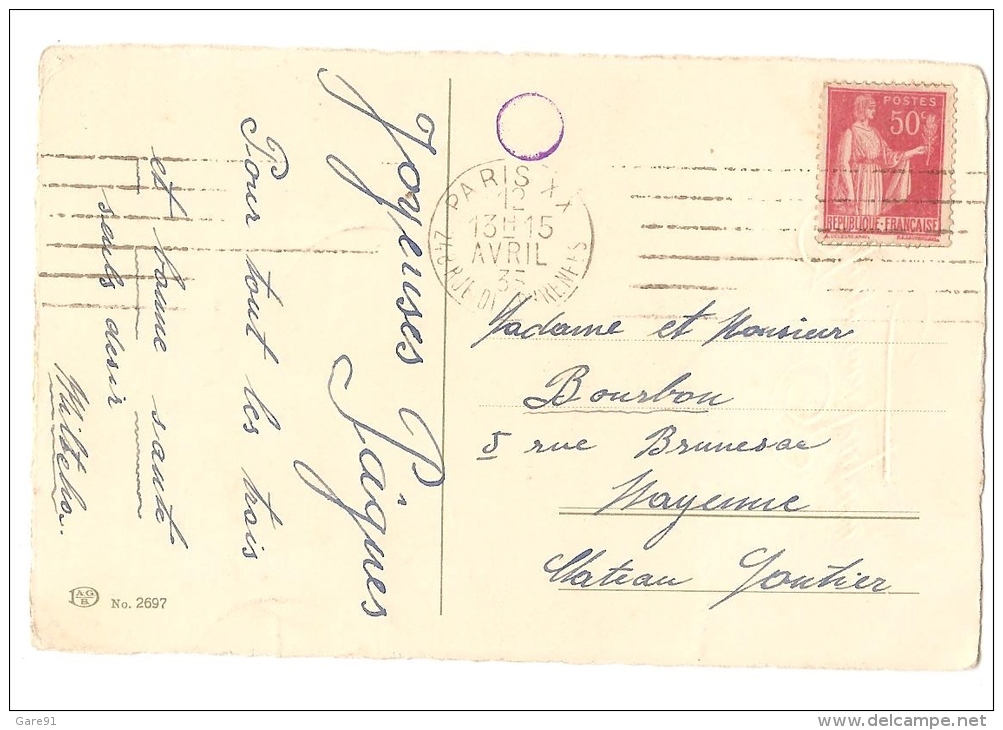 Joyeuses Pâques
Pour tout les trois
et bonne santé
seuls desir
No. 2697
A.G.
B.
PARIS XX
12
13H15
AVRIL
35
POSTES
50c
REPUBLIQUE-FRANÇAISE
Madame et Monsieur
Bourbon
5 rue
Mayenne
Chateau Gontier
Gare91
www.delcampe.net